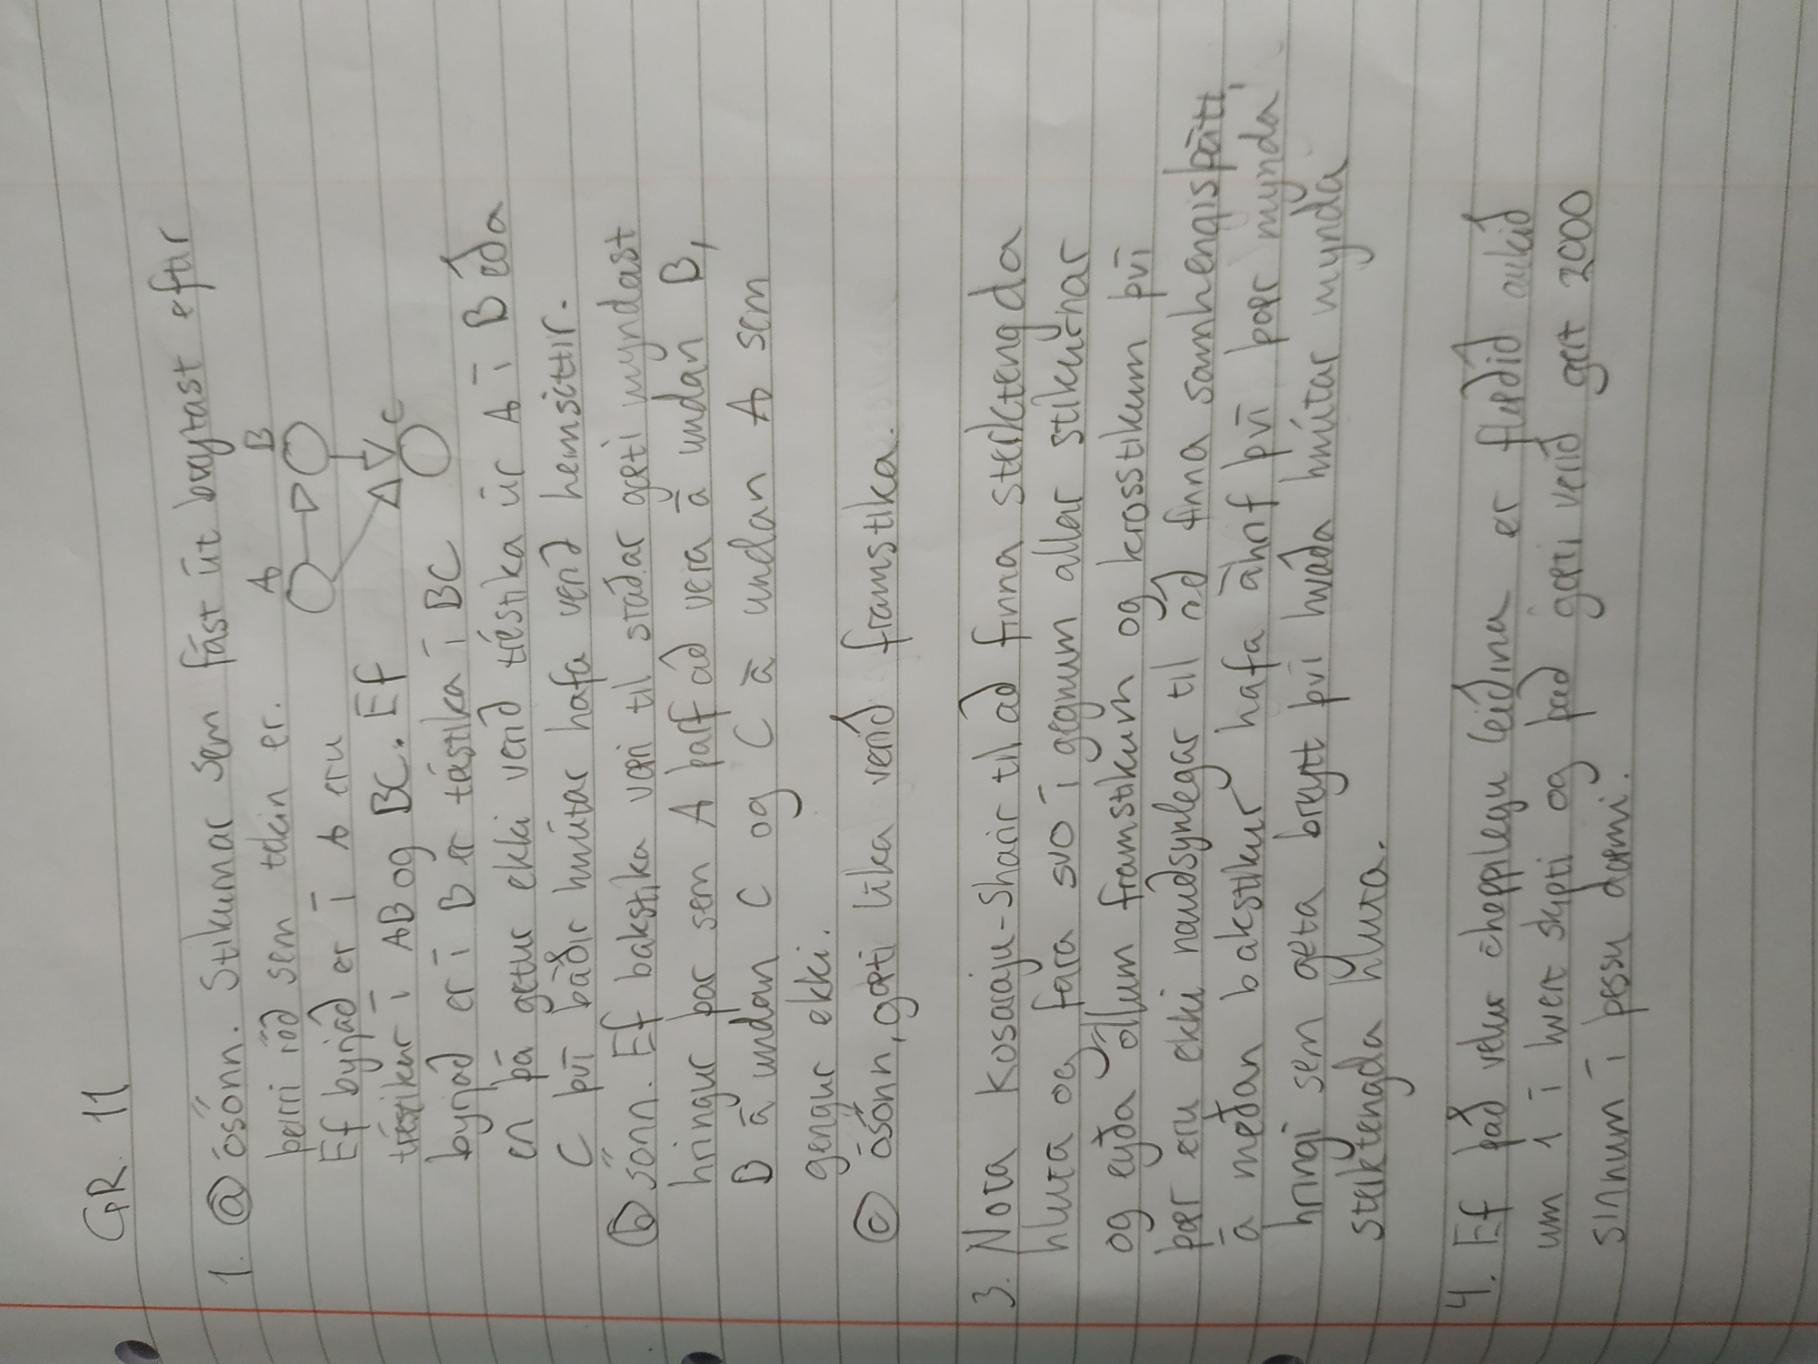 GR. 11
1. ⓐ ósönn. Stikurnar sem fást út breytast eftir
þeirri röð sem tekin er.
A B
Ef byrjað er í A eru
tréstikur í AB og BC. Ef
C
byrjað er í B er tréstika í BC
en þá getur ekki verið tréstika úr A í B eða
C því báðir hnútar hafa verið heimsóttir.
ⓑ sönn. Ef bakstika væri til staðar gæti myndast
hringur þar sem A þarf að vera á undan B,
B á undan C og C á undan A sem
gengur ekki.
ⓒ ósönn, gæti líka verið framstika.
3. Nota Kosaraju-Sharir til að finna sterktengda
hluta og fara svo í gegnum allar stikurnar
og eyða öllum framstikum og krosstikum því
þær eru ekki nauðsynlegar til að finna samhengisþátt,
á meðan bakstikur hafa áhrif því þær mynda
hringi sem geta breytt því hvaða hnútar mynda
sterktengda hluta.
4. Ef það velur óheppilegu leiðina er flæðið aukið
um 1 í hvert skipti og það gæti verið gert 2000
sinnum í þessu dæmi.